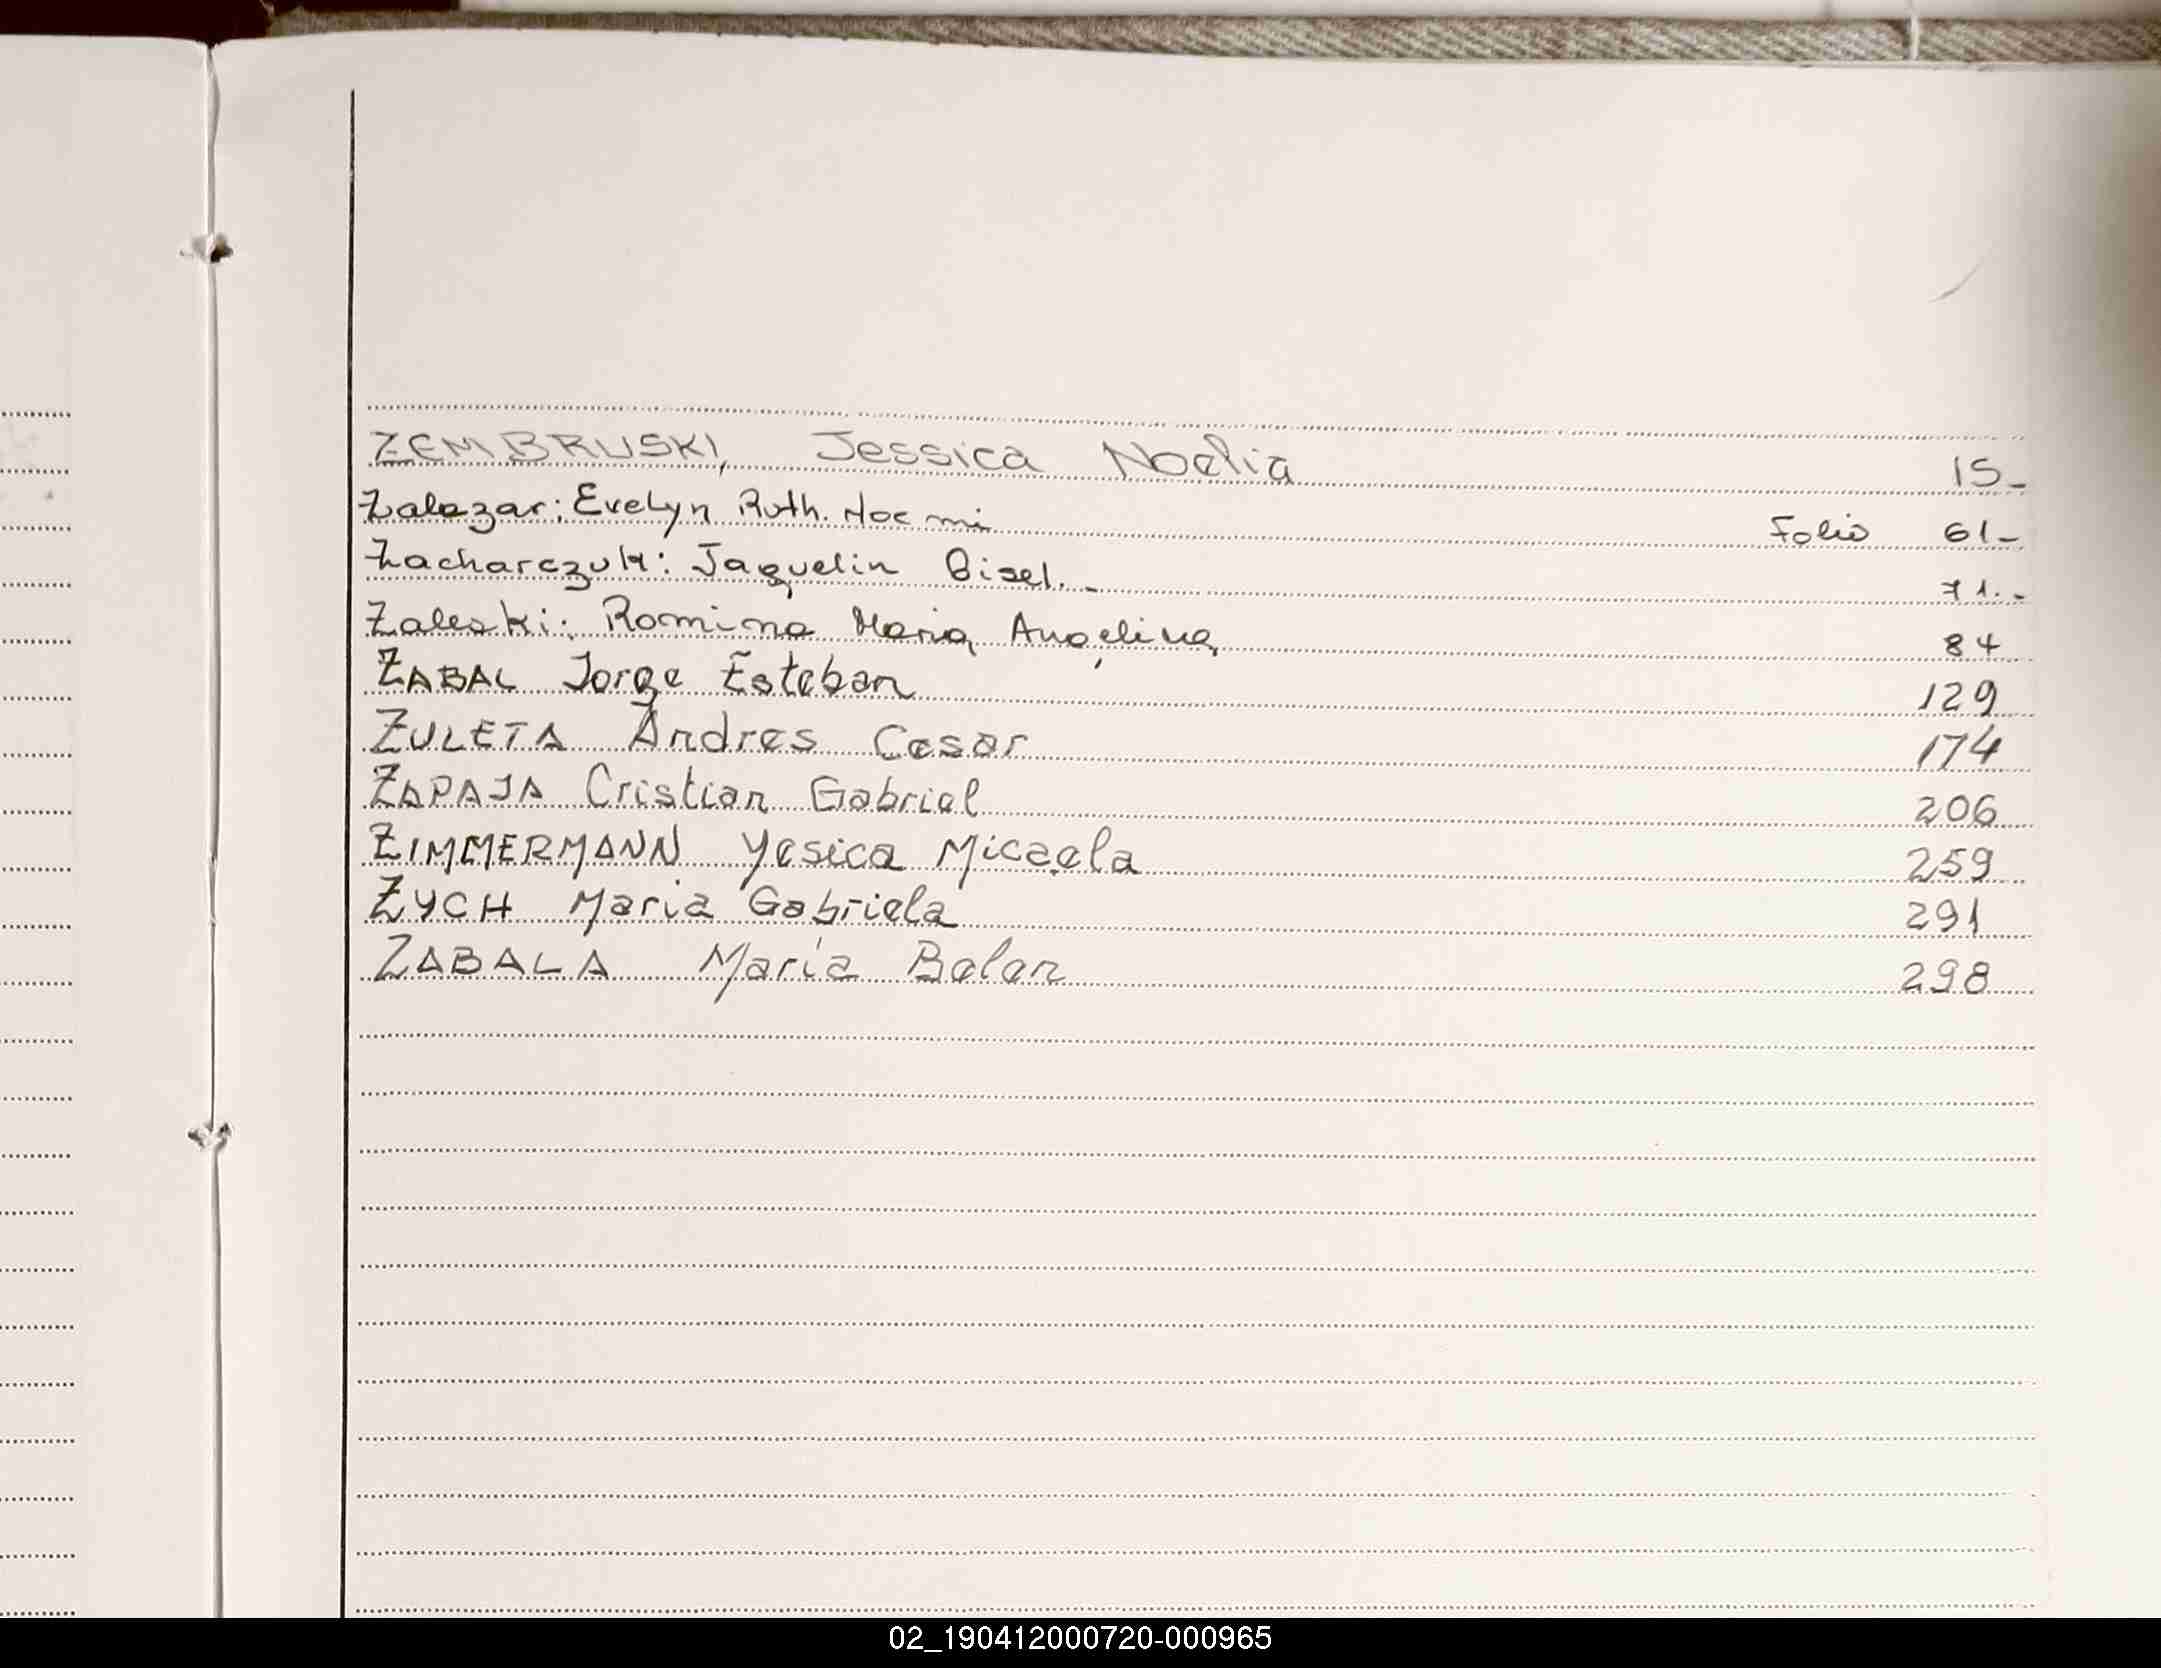 ZEMBRUSKI, Jessica Noelia 15-
Zalazar: Evelyn Ruth. Noemi Folio 61-
Zacharczuk: Jaquelin Gisel.- 71.-
Zaleski: Romina Maria Angelina 84
ZABAL Jorge Esteban 129
ZULETA Andres Cesar 174
ZAPAJA Cristian Gabriel 206
ZIMMERMANN Yesica Micaela 259
ZYCH Maria Gabriela 291
ZABALA María Belen 298
02_190412000720-000965